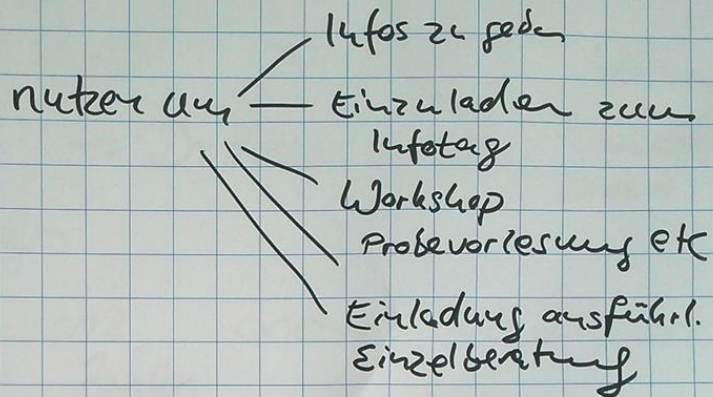 Infos zu geben
nutzen um
Einzuladen zum
Infotag
Workshop
Probevorlesung etc
Einladung ausführl.
Einzelberatung